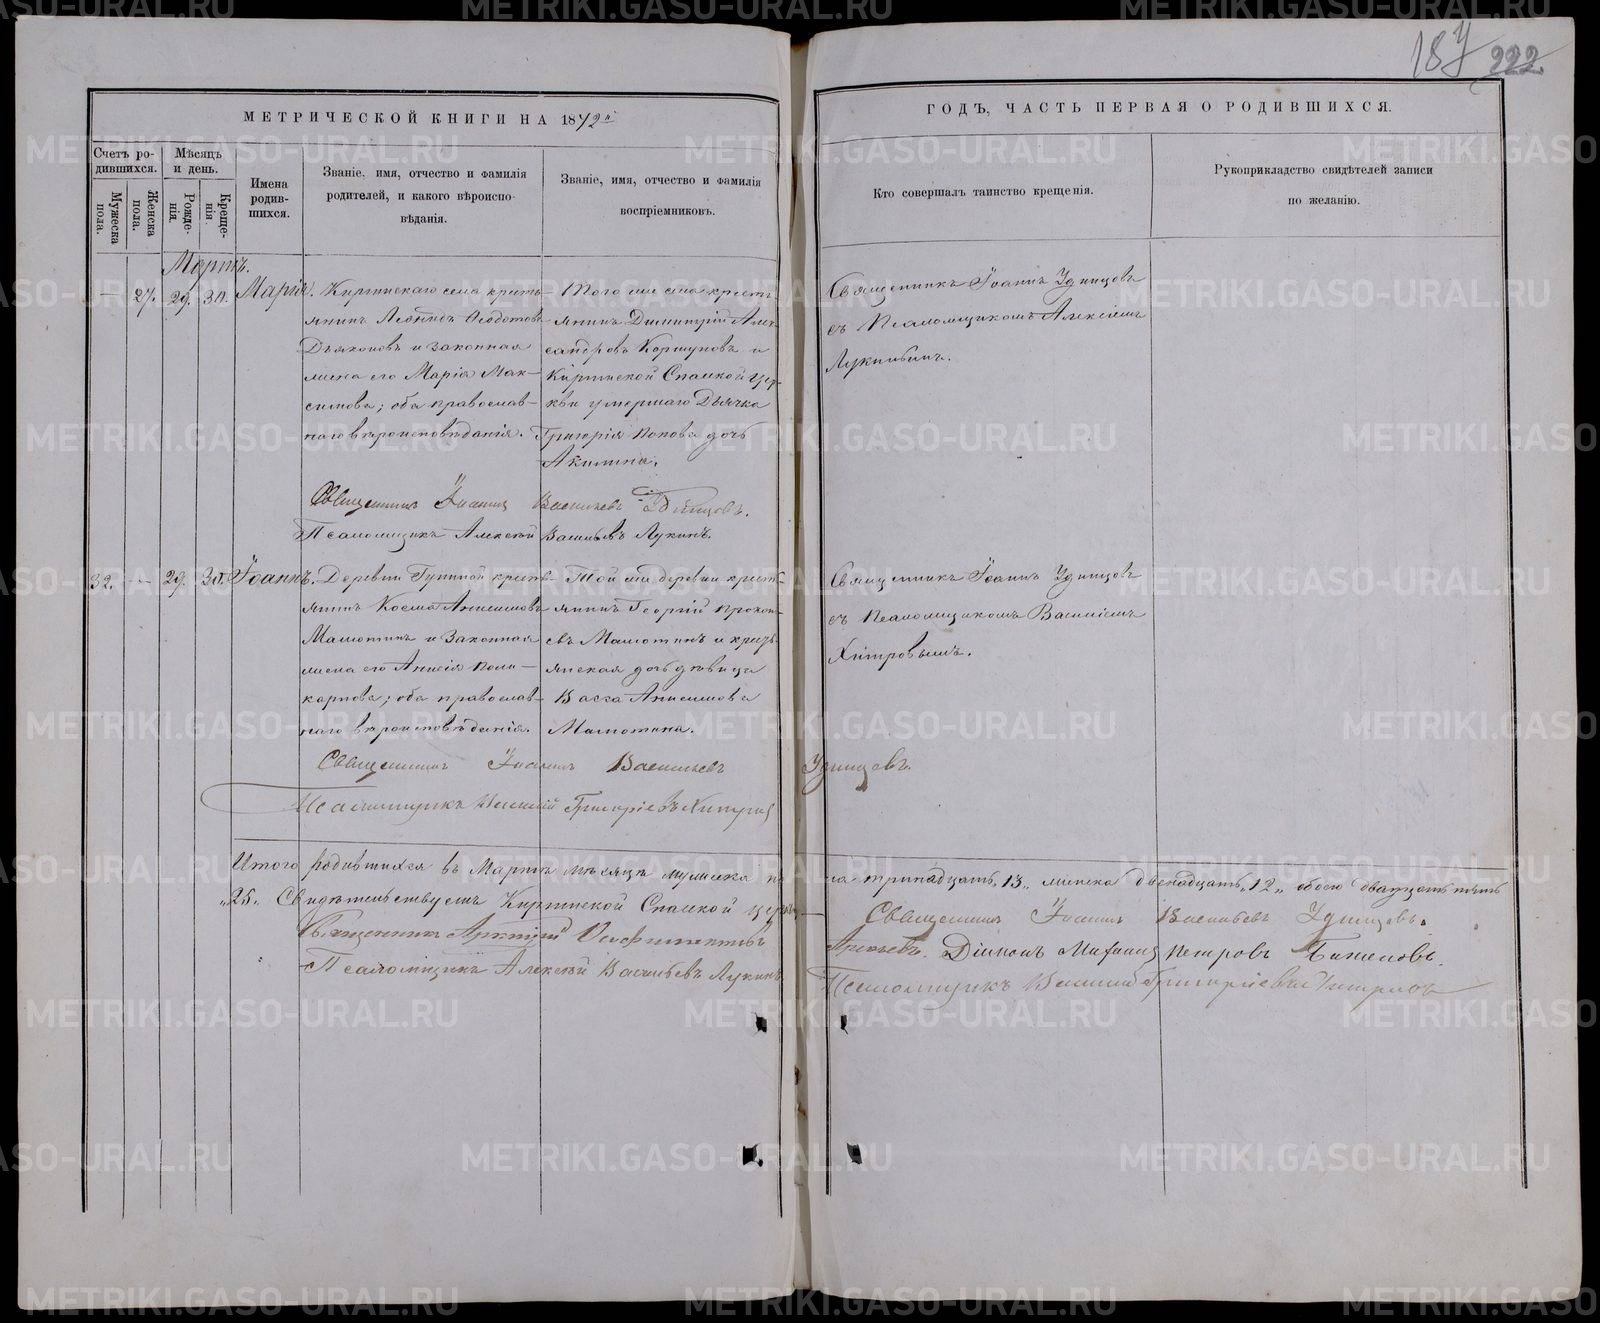 187 222
МЕТРИЧЕСКОЙ КНИГИ НА 1872й
ГОДЪ, ЧАСТЬ ПЕРВАЯ О РОДИВШИХСЯ.
Счетъ ро-
дившихся.
Мужеска
пола.
Женска
пола.
Мѣсяцъ
и день.
Рожде-
нія.
Креще-
нія.
Имена
родив-
шихся.
Званіе, имя, отчество и фамилія
родителей, и какого вѣроиспо-
вѣданія.
Званіе, имя, отчество и фамилія
воспріемниковъ.
Кто совершалъ таинство крещенія.
Рукоприкладство свидѣтелей записи
по желанію.
Мартъ.
— 27. 29. 30. Марія.
Киргинскаго села кресть-
янинъ Леонидъ Ѳедотовъ
Дьяконовъ и законная
жена его Марія Мак-
симова; оба православ-
наго вѣроисповѣданія.
Того же села кресть-
янинъ Димитрій Алек-
сандровъ Коршуновъ и
Киргинской Спасской цер-
кви умершаго Дьячка
Григорія Попова дочь
Акилина.
Священникъ Іоаннъ Удинцовъ
съ Псаломщикомъ Алексіемъ
Лукинымъ.
Священникъ Іоаннъ Васильевъ Удинцовъ.
Псаломщикъ Алексѣй Васильевъ Лукинъ.
32. — 29. 30. Іоаннъ.
Деревни Гуниной кресть-
янинъ Косма Анисимовъ
Мамотинъ и Законная
жена его Анисія Поли-
карпова; оба православ-
наго вѣроисповѣданія.
Той же деревни крест-
янинъ Георгій Прохо-
въ Мамотинъ и кресть-
янская дочь дѣвица
Васса Анисимова
Мамотина.
Священникъ Іоаннъ Удинцовъ
съ Псаломщикомъ Василіемъ
Хитровымъ.
Священникъ Іоаннъ Васильевъ Удинцовъ.
Псаломщикъ Василій Григорьевъ Хитровъ
Итого родившихся въ Мартѣ мѣсяцѣ мужеска по-
ла тринадцать „13„ женска двенадцать „12„ обоего двадцать пять
„25„ Свидѣтельствуемъ Киргинской Спасской церкви
Священникъ Іоаннъ Васильевъ Удинцовъ.
Священникъ
Діаконъ Михаилъ Петровъ
Псаломщикъ Алексѣй Васильевъ Лукинъ
Псаломщикъ Василій Григорьевъ Хитровъ
METRIKI.GASO-URAL.RU